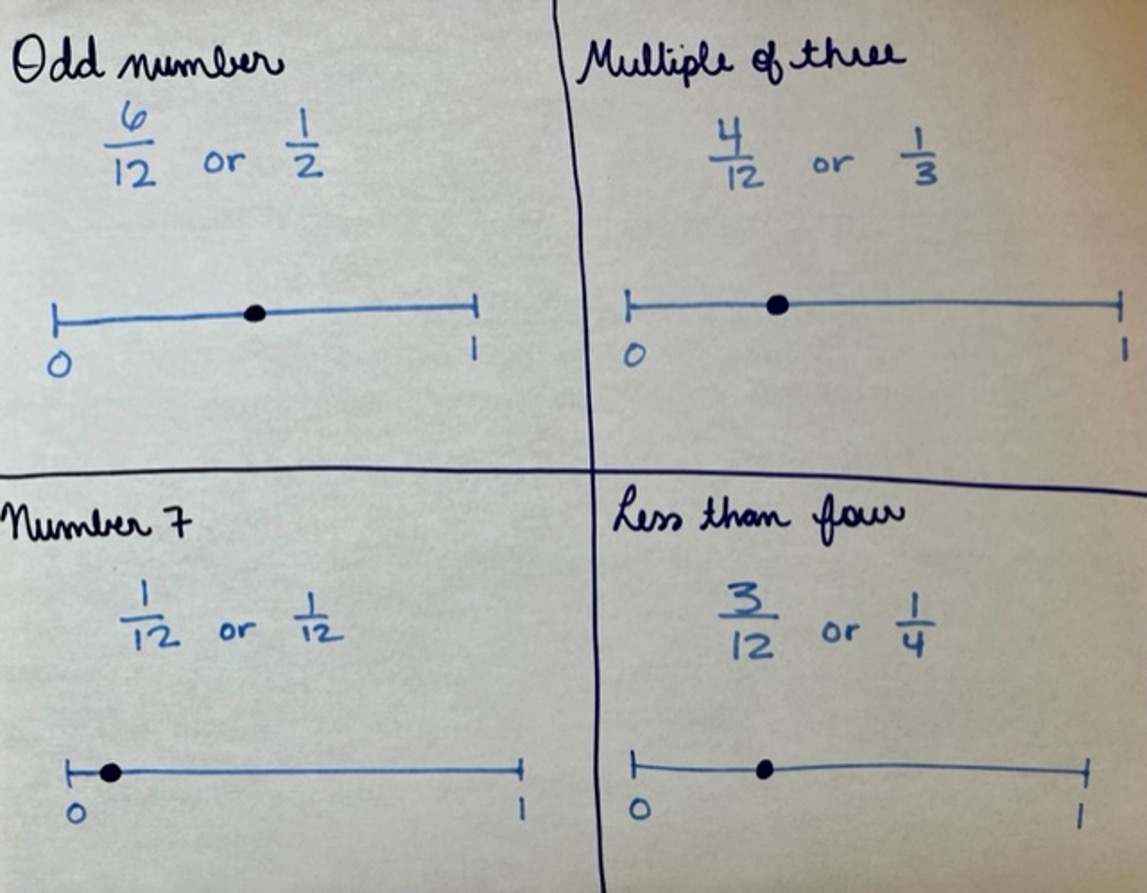 Odd number
6/12 or 1/2
0 1
Multiple of three
4/12 or 1/3
0 1
Number 7
1/12 or 1/12
0 1
Less than four
3/12 or 1/4
0 1